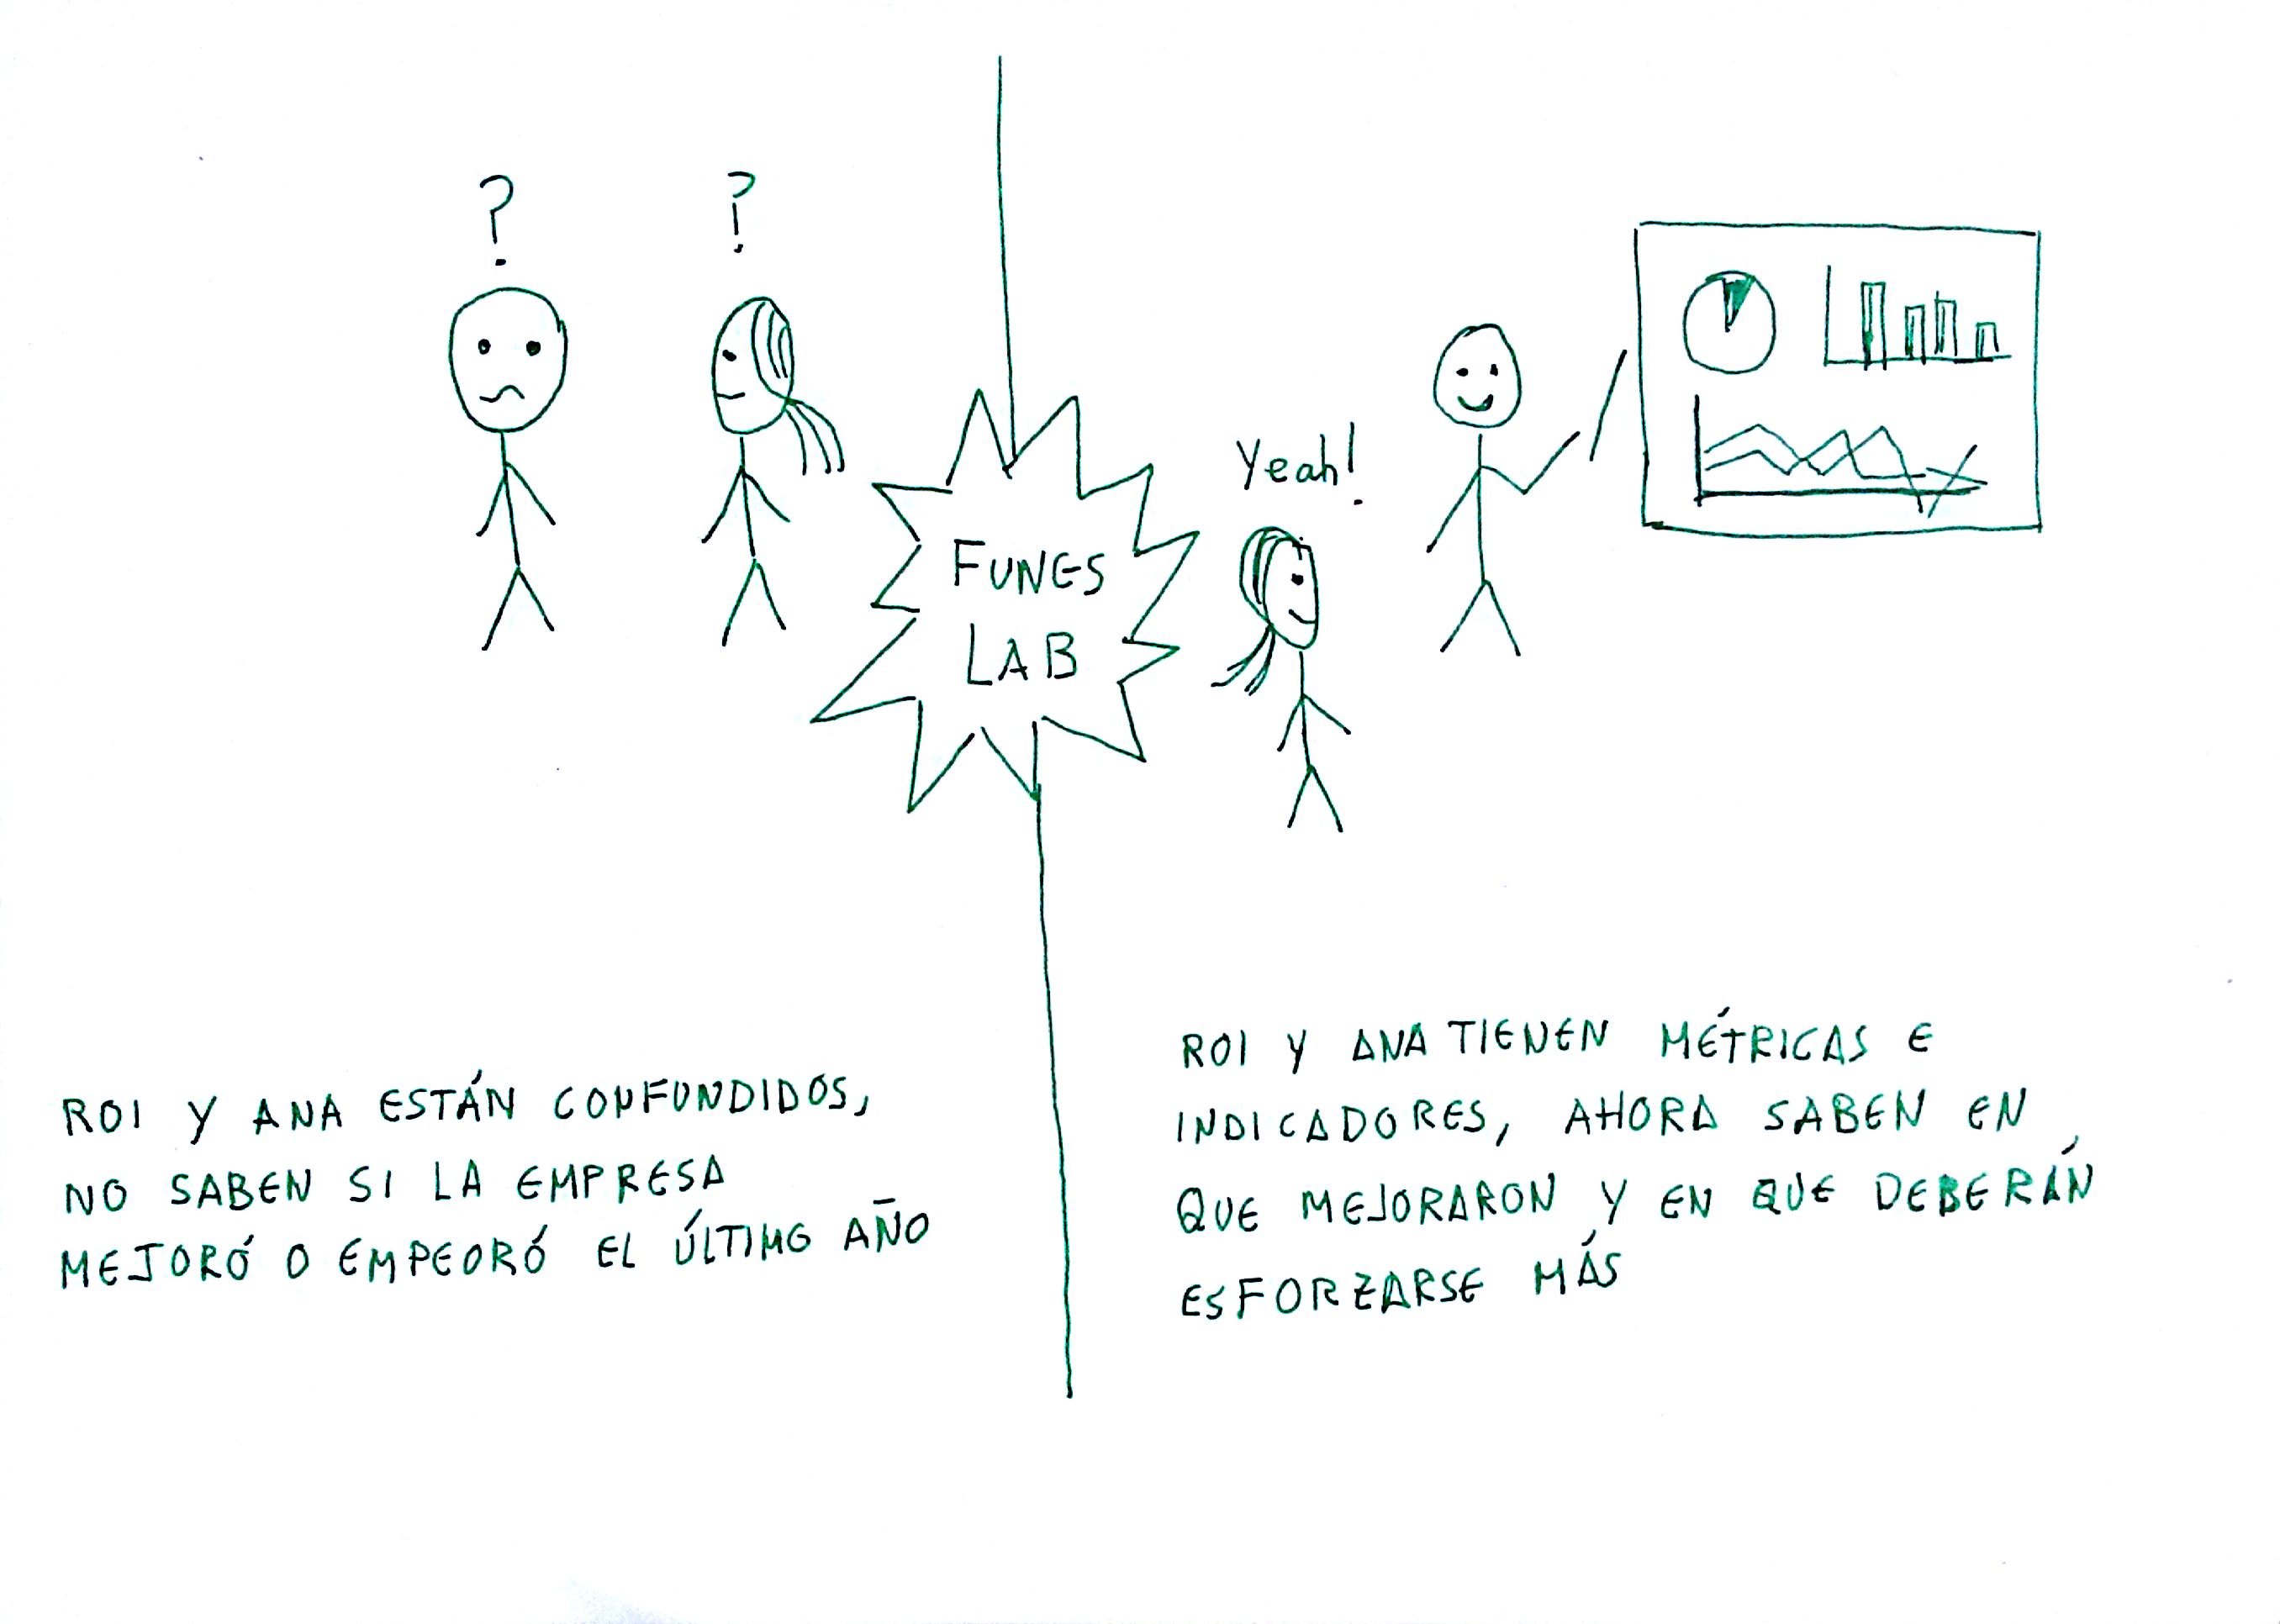 ?
?
FUNES
LAB
Yeah!
ROI Y ANA ESTÁN CONFUNDIDOS,
NO SABEN SI LA EMPRESA
MEJORÓ O EMPEORÓ EL ÚLTIMO AÑO
ROI Y ANA TIENEN MÉTRICAS E
INDICADORES, AHORA SABEN EN
QUE MEJORARON Y EN QUE DEBERÁN
ESFORZARSE MÁS